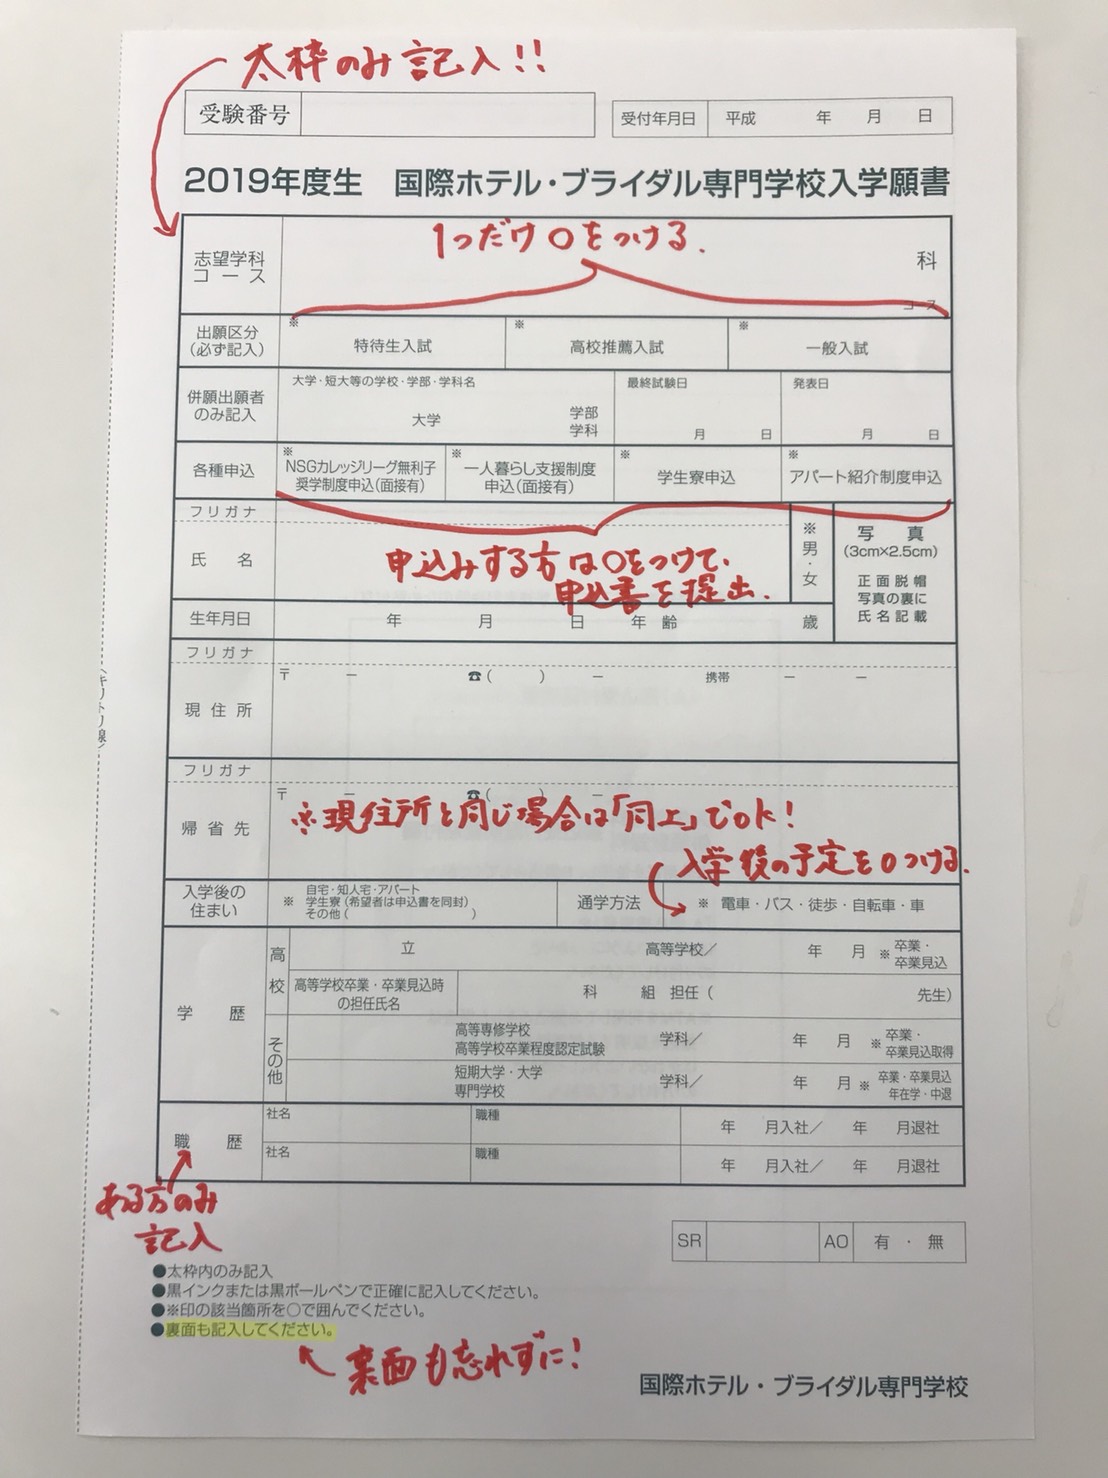 太枠のみ記入!!
受験番号
受付年月日 平成 年 月 日
2019年度生 国際ホテル・ブライダル専門学校入学願書
1つだけ○をつける.
志望学科
コース
科
コース
出願区分
(必ず記入)
※ 特待生入試
※ 高校推薦入試
※ 一般入試
併願出願者
のみ記入
大学・短大等の学校・学部・学科名
大学
学部
学科
最終試験日
月 日
発表日
月 日
各種申込
※
NSGカレッジリーグ無利子
奨学制度申込(面接有)
※
一人暮らし支援制度
申込(面接有)
※
学生寮申込
※
アパート紹介制度申込
フリガナ
氏名
申込みする方は○をつけて、
申込書を提出.
※
男・女
写真
(3cm×2.5cm)
正面脱帽
写真の裏に
氏名記載
生年月日 年 月 日 年齢 歳
フリガナ
現住所
〒 － ☎( ) － 携帯 － －
フリガナ
帰省先
〒 － ☎( ) －
※現住所と同じ場合は「同上」でok!
入学後の予定を○つける.
入学後の
住まい
※
自宅・知人宅・アパート
学生寮(希望者は申込書を同封)
その他( )
通学方法
※ 電車・バス・徒歩・自転車・車
学歴
高校
立 高等学校／ 年 月 ※ 卒業・
卒業見込
高等学校卒業・卒業見込時
の担任氏名
科 組 担任( 先生)
その他
高等専修学校
高等学校卒業程度認定試験
学科／ 年 月 ※ 卒業・
卒業見込取得
短期大学・大学
専門学校
学科／ 年 月 ※ 卒業・卒業見込
年在学・中退
職歴
社名 職種 年 月入社／ 年 月退社
社名 職種 年 月入社／ 年 月退社
(キリトリ線)
ある方のみ
記入
SR AO 有・無
●太枠内のみ記入
●黒インクまたは黒ボールペンで正確に記入してください。
●※印の該当箇所を○で囲んでください。
●裏面も記入してください。
裏面も忘れずに!
国際ホテル・ブライダル専門学校